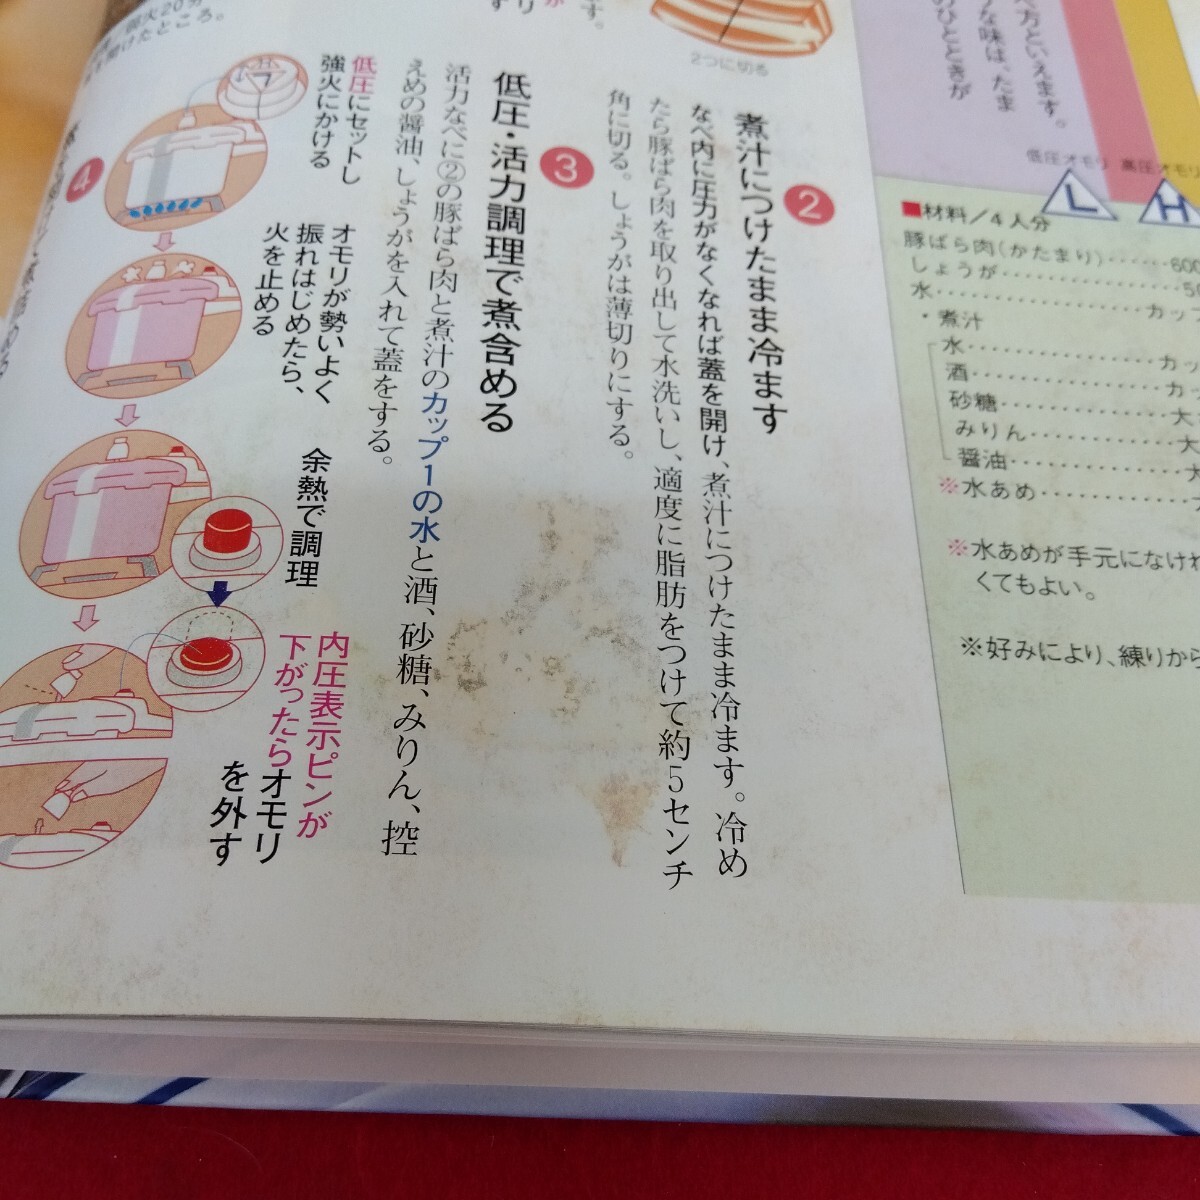 べ方といえます。
な味は、たま
のひとときが
低圧オモリ 高圧オモリ
L H
■材料/4人分
豚ばら肉(かたまり)……600
しょうが……………50
水………………カップ
・煮汁
水………………カッ
酒………………カッ
砂糖………………大
みりん………………大
醤油………………大
※水あめ………………
※水あめが手元になけれ
くてもよい。
※好みにより、練りから
2つに切る
2
煮汁につけたまま冷ます
なべ内に圧力がなくなれば蓋を開け、煮汁につけたまま冷ます。冷め
たら豚ばら肉を取り出して水洗いし、適度に脂肪をつけて約5センチ
角に切る。しょうがは薄切りにする。
3
低圧・活力調理で煮含める
活力なべに②の豚ばら肉と煮汁のカップ1の水と酒、砂糖、みりん、控
えめの醤油、しょうがを入れて蓋をする。
低圧にセットし
強火にかける
オモリが勢いよく
振れはじめたら、
火を止める
余熱で調理
内圧表示ピンが
下がったらオモリ
を外す
弱火20分
開けたところ。
4